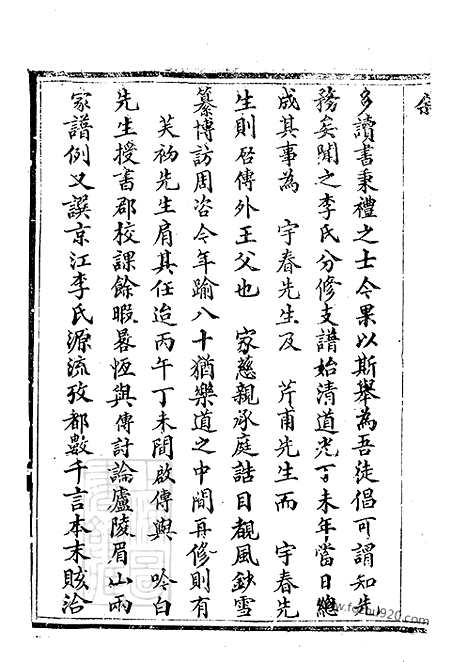 多讀書秉禮之士今果以斯舉為吾徒倡可謂知先
務矣聞之李氏分修支譜始清道光丁未年當日總
成其事為 宇春先生及 芹甫先生而 宇春先
生則啓傳外王父也 家慈親承庭詁目覩風鈔雪
纂博訪周咨今年踰八十猶樂道之中間再修則有
芙初先生肩其任迨丙午丁未間啟傳與 吟白
先生授書郡校課餘暇晷恆與傳討論廬陵眉山兩
家譜例又譔京江李氏源流攷都數千言本末賅洽